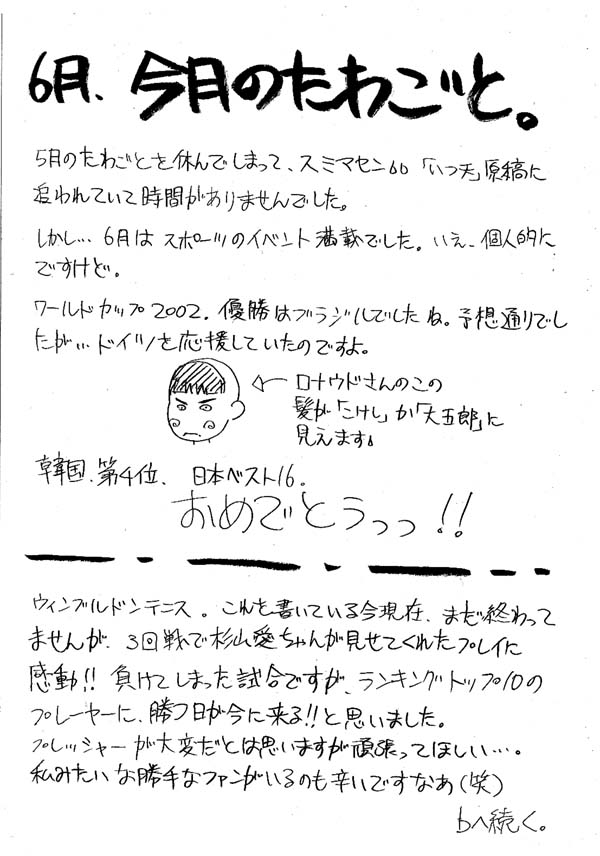 6月、今月のたわごと。
5月のたわごとを休んでしまって、スミマセン。「いつ天」原稿に
追われていて時間がありませんでした。
しかし…6月はスポーツのイベント満載でした。いえ、個人的に
ですけど。
ワールドカップ2002。優勝はブラジルでしたね。予想通りでし
たが…ドイツを応援していたのですよ。
ロナウドさんのこの
髪が「こけし」か「大五郎」に
見えます。
韓国、第4位、日本ベスト16。
おめでとうっっ!!
ウィンブルドンテニス。これを書いている今現在、まだ終わって
ませんが、3回戦で杉山愛ちゃんが見せてくれたプレイに
感動!!負けてしまった試合ですが、ランキングトップ10の
プレーヤーに、勝つ日が今に来る!!と思いました。
プレッシャーが大変だとは思いますが頑張ってほしい…。
私みたいな勝手なファンがいるのも辛いですなあ(笑)
bへ続く。